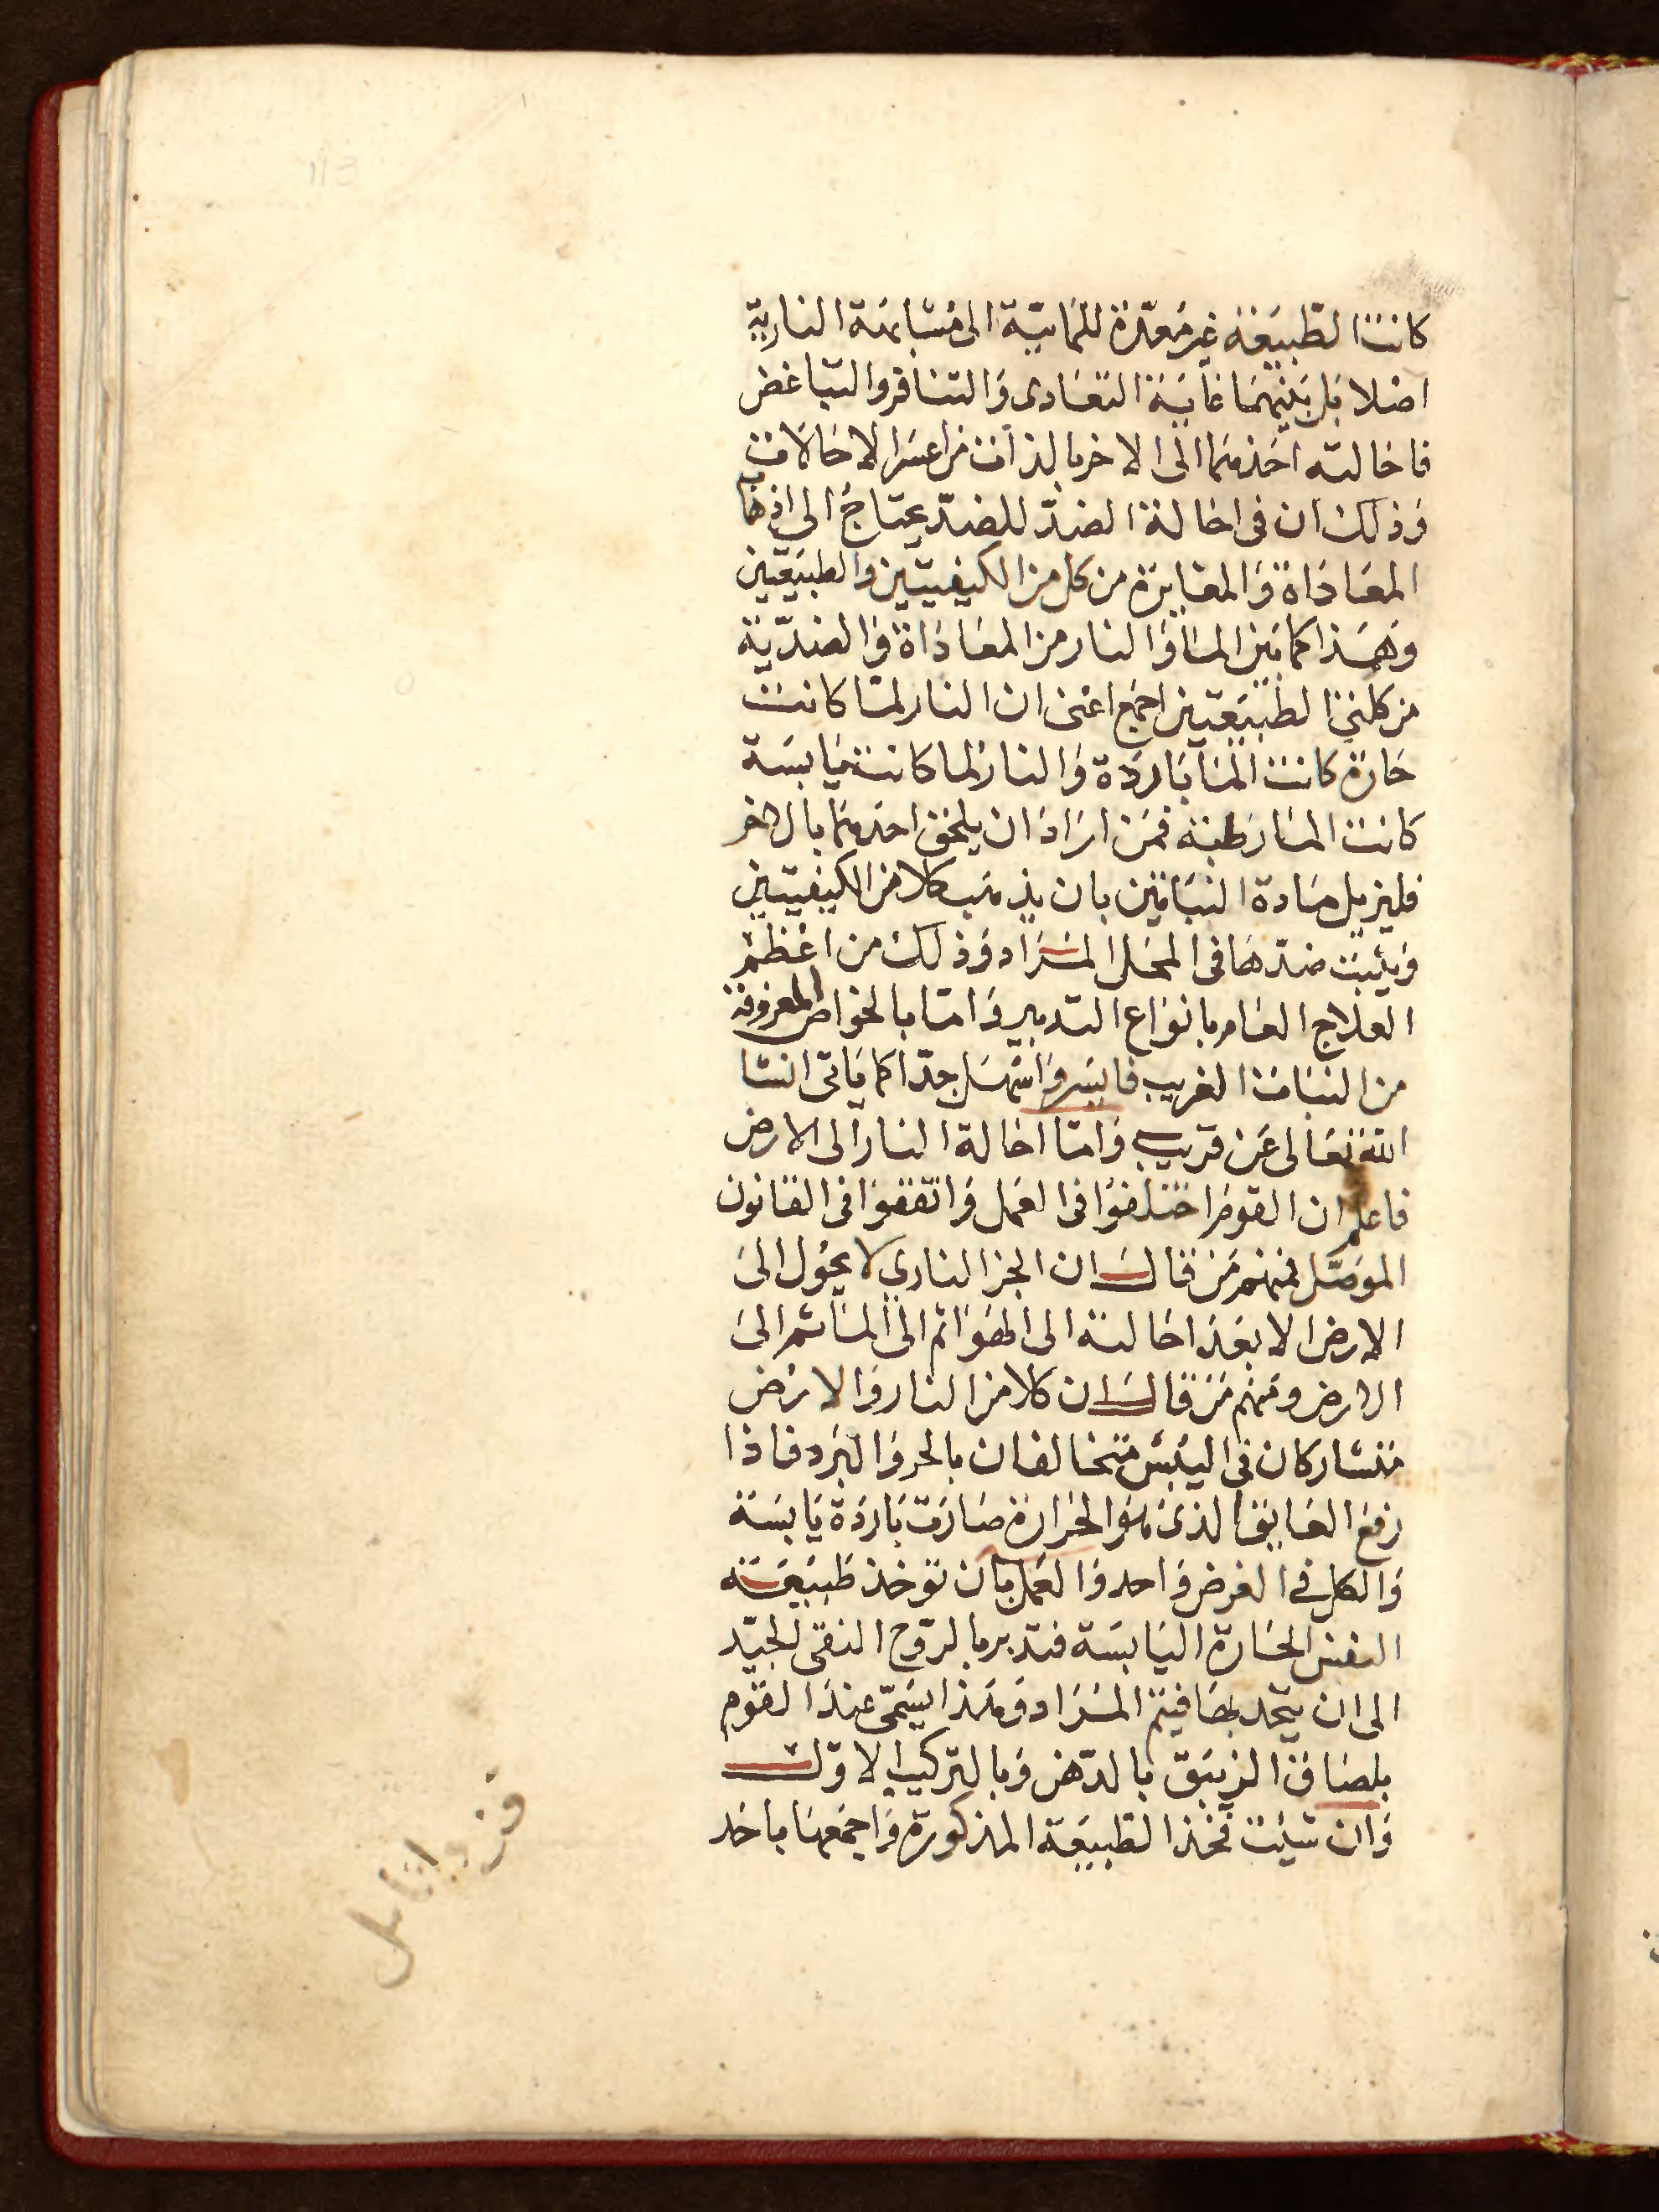 كانت الطبيعة غير معدّة للمائيّة الى مشابهة الناريّة
اصلا بل بينهما غاية التعادى والتنافر والتباغض
فاحالته احدهما الى الاخر بالذات من اعسر الاحالات
وذلك ان فى احالة الضدّ للضدّ يحتاج الى اذهاب
المعاداة والمغايرة من كل من الكيفيتين والطبيعتين
وهذا كما بين الماء والنار من المعاداة والضدّية
من كلتى الطبيعتين اجمع اعنى ان النار لما كانت
حارة كانت الماء باردة والنار لما كانت يابسة
كانت الماء رطبة فمن اراد ان يلحق احدهما بالاخر
فليزيل مادة التباين بان يذهب كلا من الكيفيتين
ويثبت ضدّها فى المحل المراد وذلك من اعظم
العلاج العام بانواع التدبير واما بالخواص المعروفة
من النبات الغريب فايسر واسهل جدّا كما ياتى انشا
الله تعالى عن قريب واما احالة النار الى الارض
فاعلم ان القوم اختلفوا فى العمل واتفقوا فى القانون
الموصّل فمنهم من قال ان الجز النارى لا يحول الى
الارض الا بعد احالته الى الهواء ثم الى الماء ثم الى
الارض ومنهم من قال ان كلا من النار والارض
متشاركان فى اليبس متخالفان بالحر والبرد فاذا
رفع العايق الذى هو الحرارة صارت باردة يابسة
والكل فى الغرض واحد والعمل بان توخذ طبيعة
النفس الحارة اليابسة فتدبر بالروح النقى الجيّد
الى ان يتحد بها فيتم المراد وهذا يسمّى عند القوم
بلصاق الزيبق بالدهن وبالتركيب الاوّل
وان شيت فخذ الطبيعة المذكورة واجمعها باحد